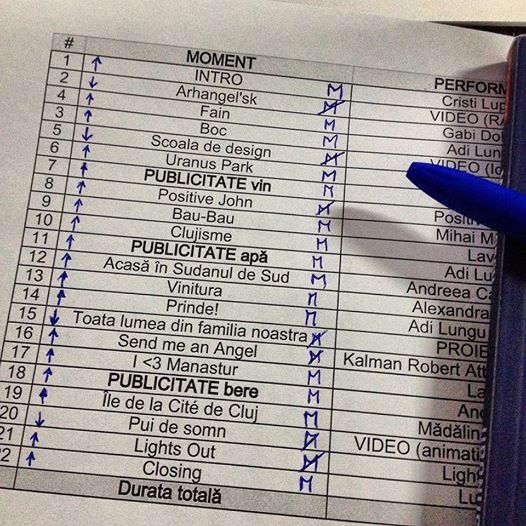 # MOMENT PERFORM
1 INTRO Cristi Lup
2 Arhangel'sk M VIDEO (RA
4 Fain M Gabi Dob
3 Boc M Adi Lun
5 Scoala de design M VIDEO (Io
6 Uranus Park M
7 PUBLICITATE vin M
8 Positive John M Positiv
9 Bau-Bau M Mihai M
10 Clujisme M Lav
11 PUBLICITATE apă M Adi Lu
12 Acasă în Sudanul de Sud M Andreea Ca
13 Vinitura M Alexandra
14 Prinde! M Adi Lungu
15 Toata lumea din familia noastra M PROIE
16 Send me an Angel M Kalman Robert Att
17 I <3 Manastur M La
18 PUBLICITATE bere M And
19 Île de la Cité de Cluj M Mădălin
20 Pui de somn M VIDEO (animati
21 Lights Out M Ligh
22 Closing M Lu
Durata totală